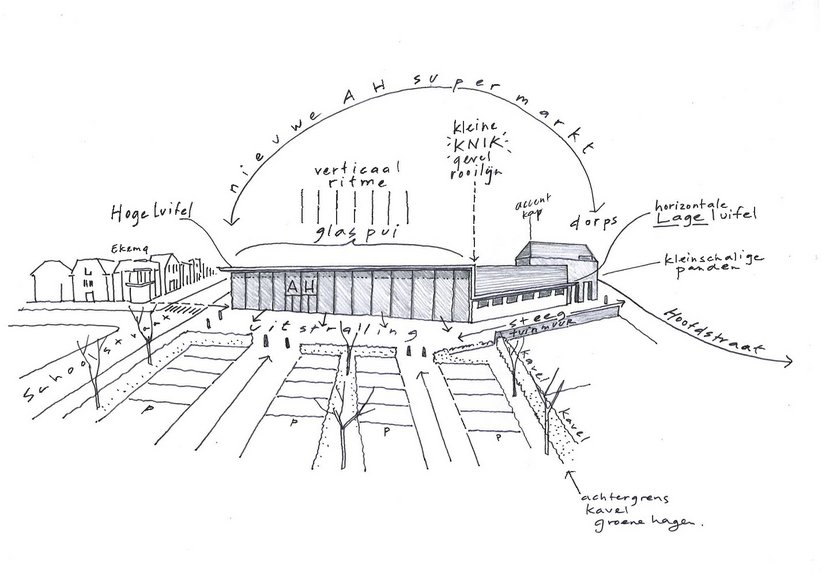 nieuwe AH supermarkt
kleine
KNIK
gevel
rooilijn
verticaal
ritme
glas pui
Hoge luifel
Ekzma
accent
kap
dorps
horizontale
Lage luifel
kleinschalige
panden
AH
uitstralling
steeg
tuinmuur
Hoofdstraat
Schoolstraat
kavel
kavel
P
P
P
P
achtergrens
kavel
groene hagen.